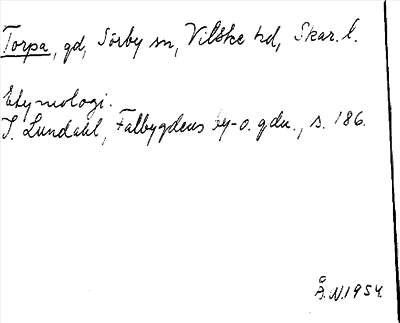 Torpa, gd, Sörby sn, Vilske hd, Skar. l.
Etymologi.
I. Lundahl, Falbygdens by-o. gdn., s. 186.
Å.N.1954.